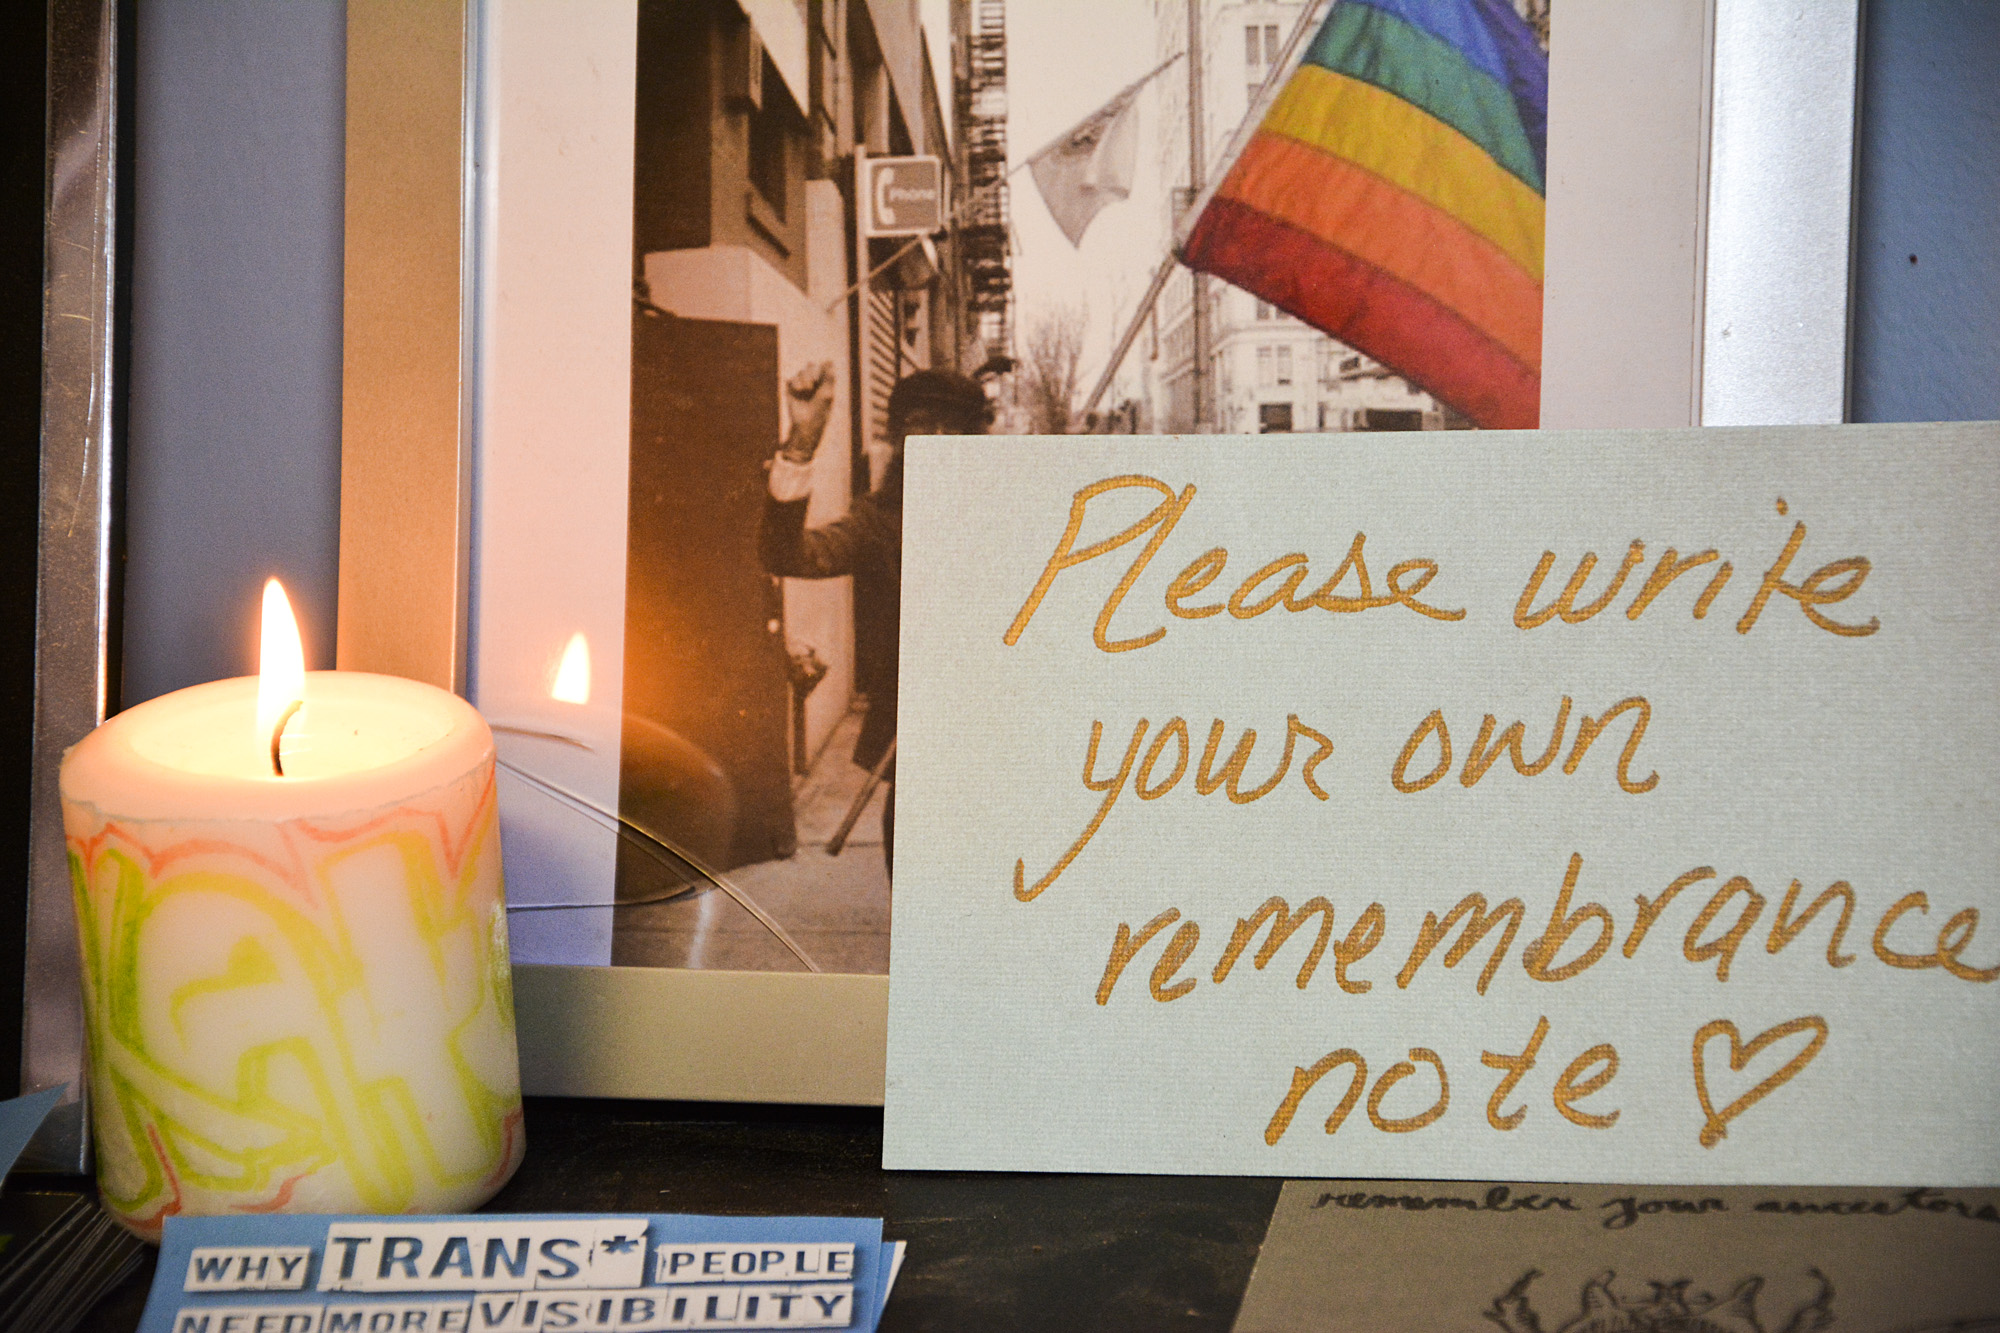 Phone
Please write
your own
remembrance
note
remember your ancestors
WHY TRANS* PEOPLE
NEED MORE VISIBILITY